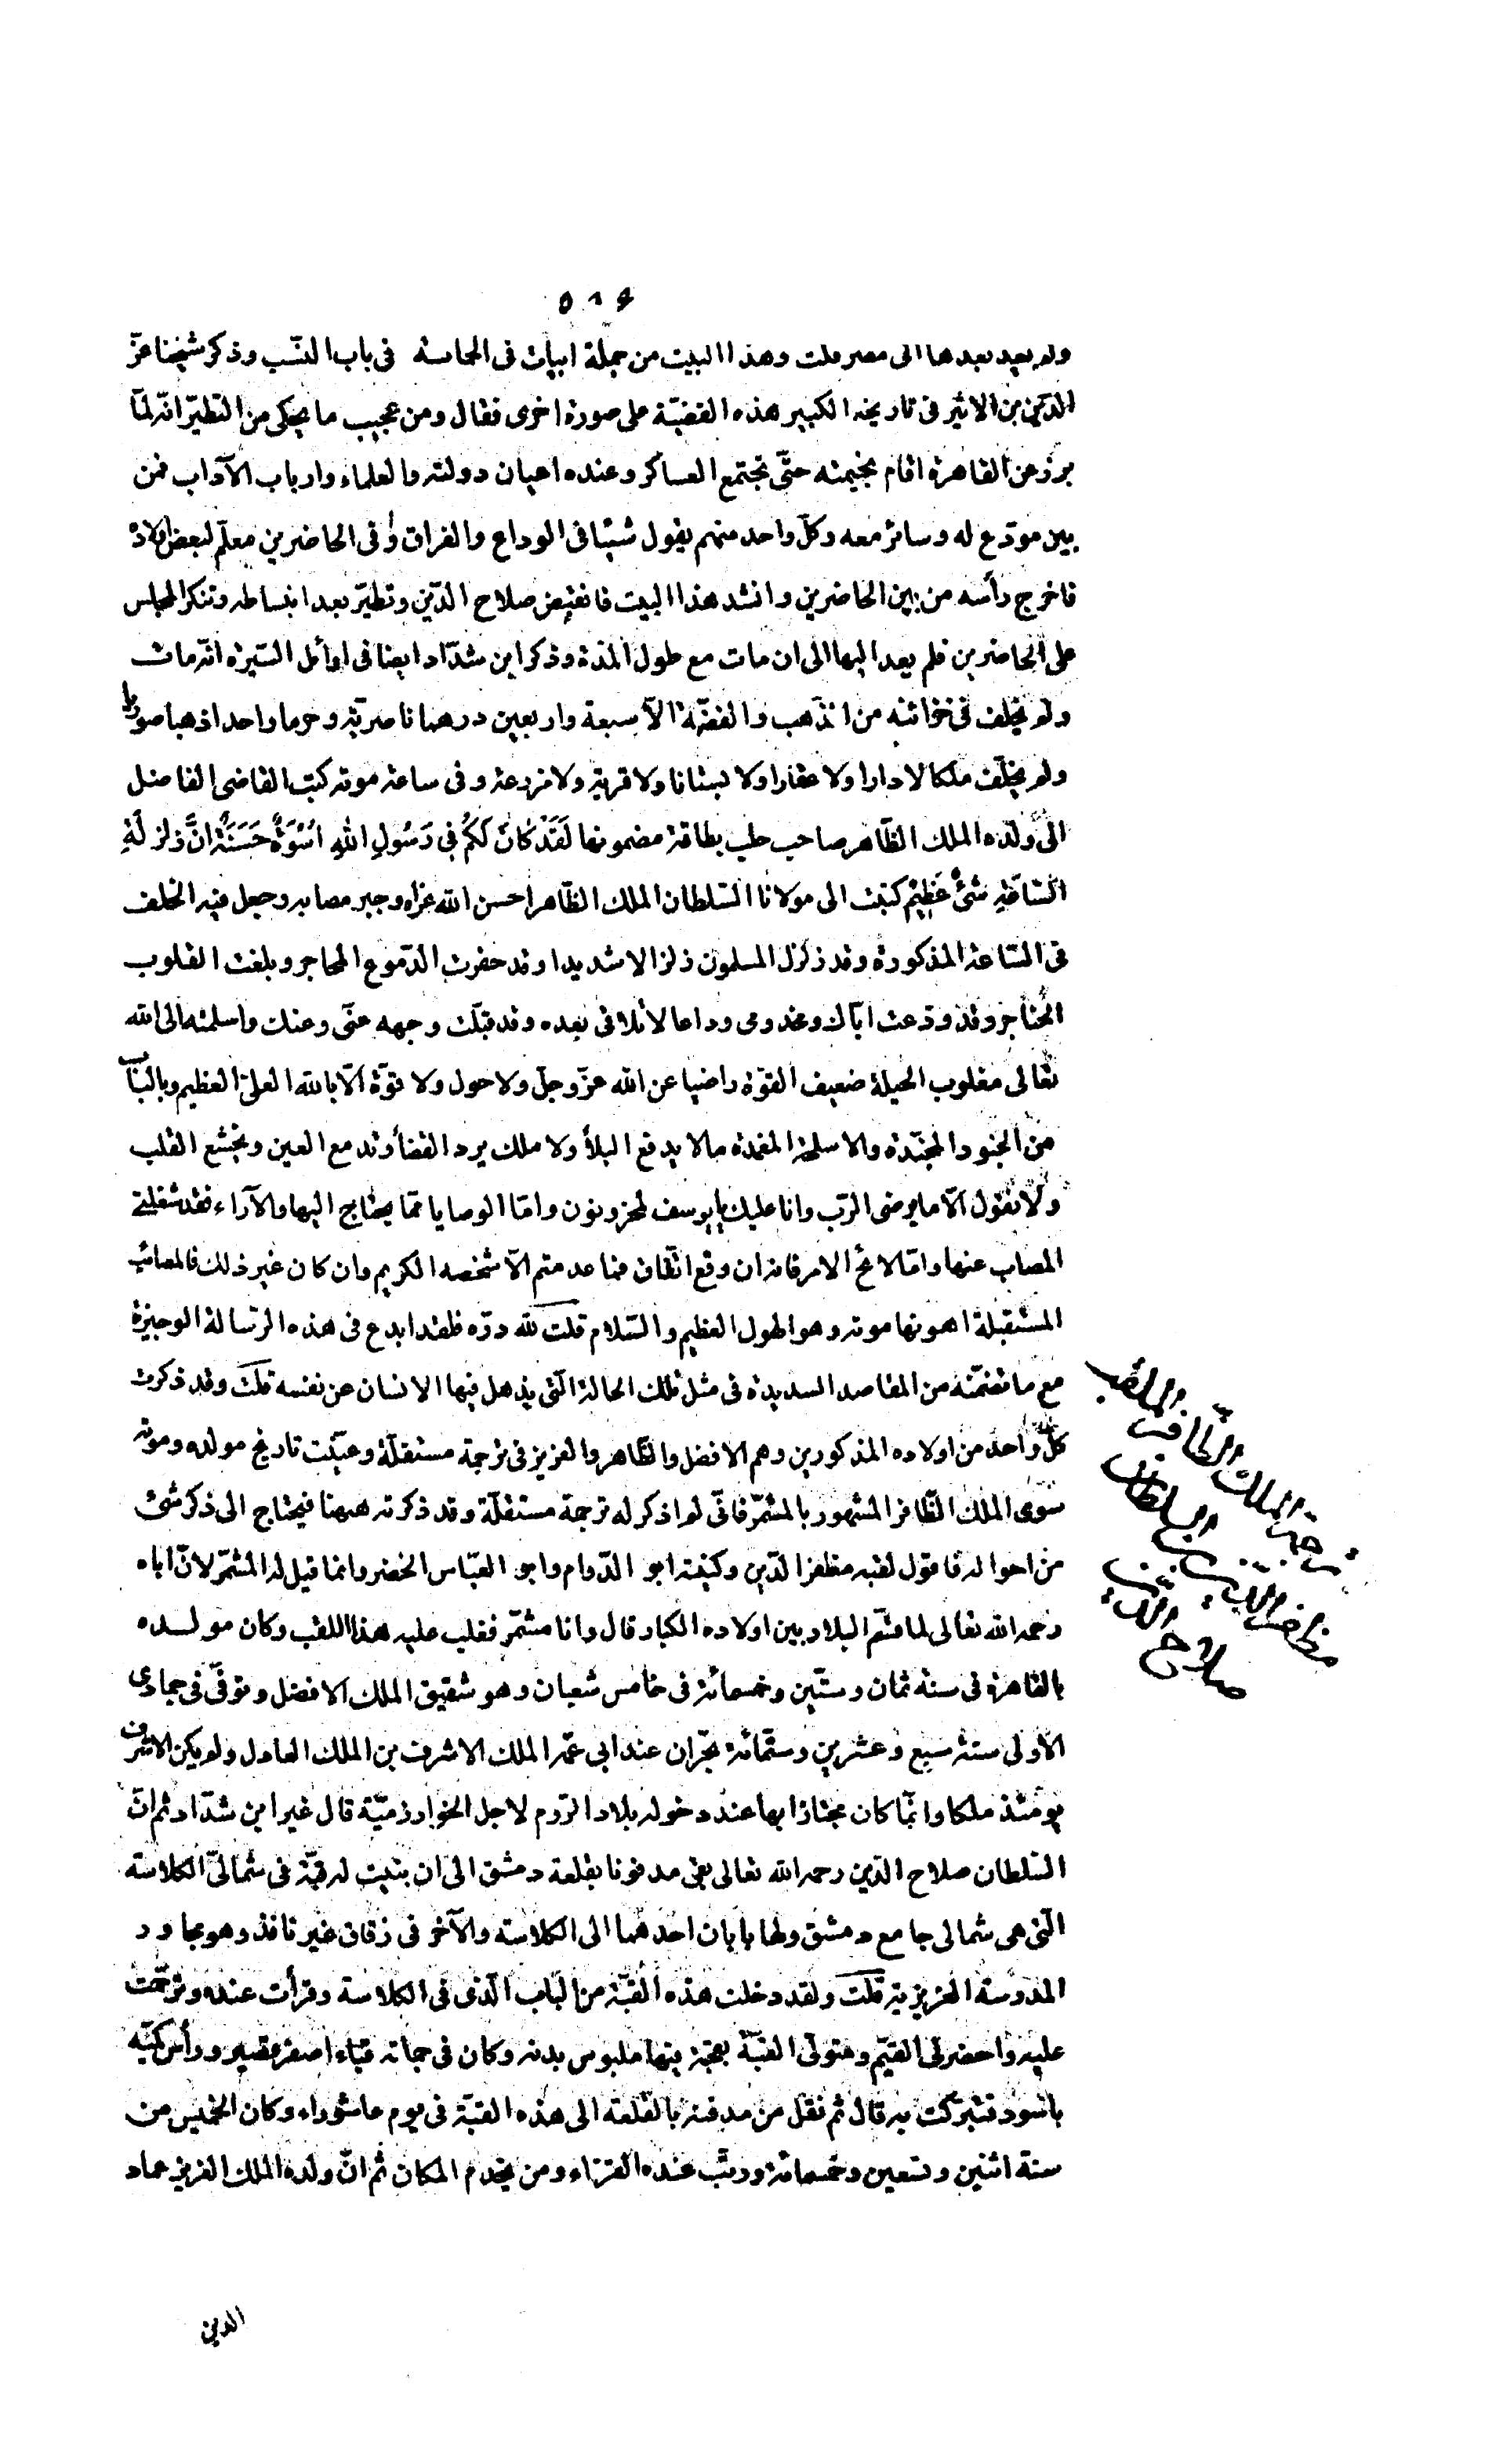 ٥٠٤
ولم يعد بعدها الى مصر قلت وهذا البيت من جملة ابيات فى الحماسة فى باب النسب وذكر شيخنا عزّ
الدّين بن الاثير فى تاريخه الكبير هذه القضيّة على صورة اخرى فقال ومن عجيب ما يحكى من التطيّر انّه لمّا
برز عن القاهرة اقام بخيمته حتّى تجتمع العساكر وعنده اعيان دولته والعلماء وارباب الآداب فمن
بين مودّع له وسائر معه وكلّ واحد منهم يقول شيئا فى الوداع والفراق وفى الحاضرين معلّم لبعض اولاده
فاخرج رأسه من بين الحاضرين وانشد هذا البيت فانقبض صلاح الدّين وتطيّر بعد انبساطه وتنكر المجلس
على الحاضرين فلم يعد اليها الى ان مات مع طول المدة وذكر ابن شدّاد ايضا فى اوائل السّيرة انّه مات
ولم يخلف فى خزائنه من الذّهب والفضّة الّا سبعة واربعين درهما ناصريّة وجرما واحدا ذهبا صوريّا
ولم يخلّف ملكا لا دارا ولا عقارا ولا بستانا ولا قرية ولا مزرعة وفى ساعة موته كتب القاضى الفاضل
الى ولده الملك الظّاهر صاحب حلب بطاقة مضمونها لَقَدْ كَانَ لَكُمْ فِى رَسُولِ اللهِ اُسْوَةٌ حَسَنَةٌ اِنَّ زلزلَةَ
السَّاعَةِ شَىْءٌ عَظِيْم كتبت الى مولانا السّلطان الملك الظّاهر احسن اللّه عزاه وجبر مصابه وجعل فيه الخلف
فى السّاعة المذكورة وقد زلزل المسلمون زلزالا شديدا وقد حفرت الدّموع المحاجر وبلغت القلوب
الحناجر وقد ودّعت اباك ومخدومى وداعا لا تلاقى بعده وقد قبّلت وجهه عنّى وعنك واسلمته الى اللّه
تعالى مغلوب الحيلة ضعيف القوّة راضيا عن الله عزّ وجلّ ولا حول ولا قوّة الّا باللّه العلىّ العظيم وبالباب
من الجنود المجنّدة والاسلحة المغمدة ما لا يدفع البلاء ولا ملك يرد القضاء وتدمع العين ويخشع القلب
ولا نقول الّا ما يرضى الرّب وانا عليك يا يوسف لمحزونون وامّا الوصايا فما يحتاج اليها والآراء فقد شغلنى
المصاب عنها وامّا لائح الامر فانه ان وقع اتّفاق فما عدمتم الّا شخصه الكريم وان كان غير ذلك فالمصائب
المستقبلة اهونها موته وهو الهول العظيم والسّلام قلت للّه درّه فلقد ابدع فى هذه الرّسالة الوجيزة
مع ما تضمّنته من المقاصد السديدة فى مثل تلك الحالة الّتى يذهل فيها الانسان عن نفسه قلت وقد ذكرت
كلّ واحد من اولاده المذكورين وهم الافضل والظّاهر والعزيز فى ترجمة مستقلّة وعيّنت تاريخ مولده وموته
سوى الملك الظّافر المشهور بالمشمّر فانّى لم اذكر له ترجمة مستقلّة وقد ذكرته ههنا فيحتاج الى ذكر شئ
من احواله فاقول لقبه مظفر الدّين وكنيته ابو الدّوام وابو العبّاس الخضر وانما قيل له المشمّر لانّ اباه
رحمه اللّه تعالى لما قسّم البلاد بين اولاده الكبار قال وانا مشمّر فغلب عليه هذا اللقب وكان مولده
بالقاهرة فى سنة ثمان وستّين وخمسمائة فى خامس شعبان وهو شقيق الملك الافضل وتوفّى فى جمادى
الاولى سنة سبع وعشرين وستّمائة بحرّان عند ابى عمّه الملك الاشرف بن الملك العادل ولم يكن الاشرف
يومئذ ملكا وانّما كان مجتازا بها عند دخوله بلاد الرّوم لاجل الخوارزميّة قال غير ابن شدّاد ثم انّ
السّلطان صلاح الدّين رحمه الله تعالى بقى مدفونا بقلعة دمشق الى ان بنيت له قبّة فى شمالىّ الكلاسة
الّتى هى شمالى جامع دمشق ولها بابان احدهما الى الكلاسة والآخر فى زقاق غير نافذ وهو مجاور
المدرسة العزيزية قلت ولقد دخلت هذه القبّة من الباب الّذى فى الكلاسة وقرأت عنده وترحّمت
عليه واحضر لى القيّم ومتولّى القبّة بقجة فيها ملبوس بدنه وكان فى جملته قباء اصفر قصير ورأس كمّيه
باسود فتبرّكت به قال ثم نقل من مدفنه بالقلعة الى هذه القبّة فى يوم عاشوراء وكان الخميس من
سنة اثنين وتسعين وخمسمائة ورتّب عنده القرّاء ومن يخدم المكان ثم انّ ولده الملك العزيز عماد
ترجمة الملك الظافر الملقب
مظفر الدين ابن السلطان
صلاح الدين
الدين